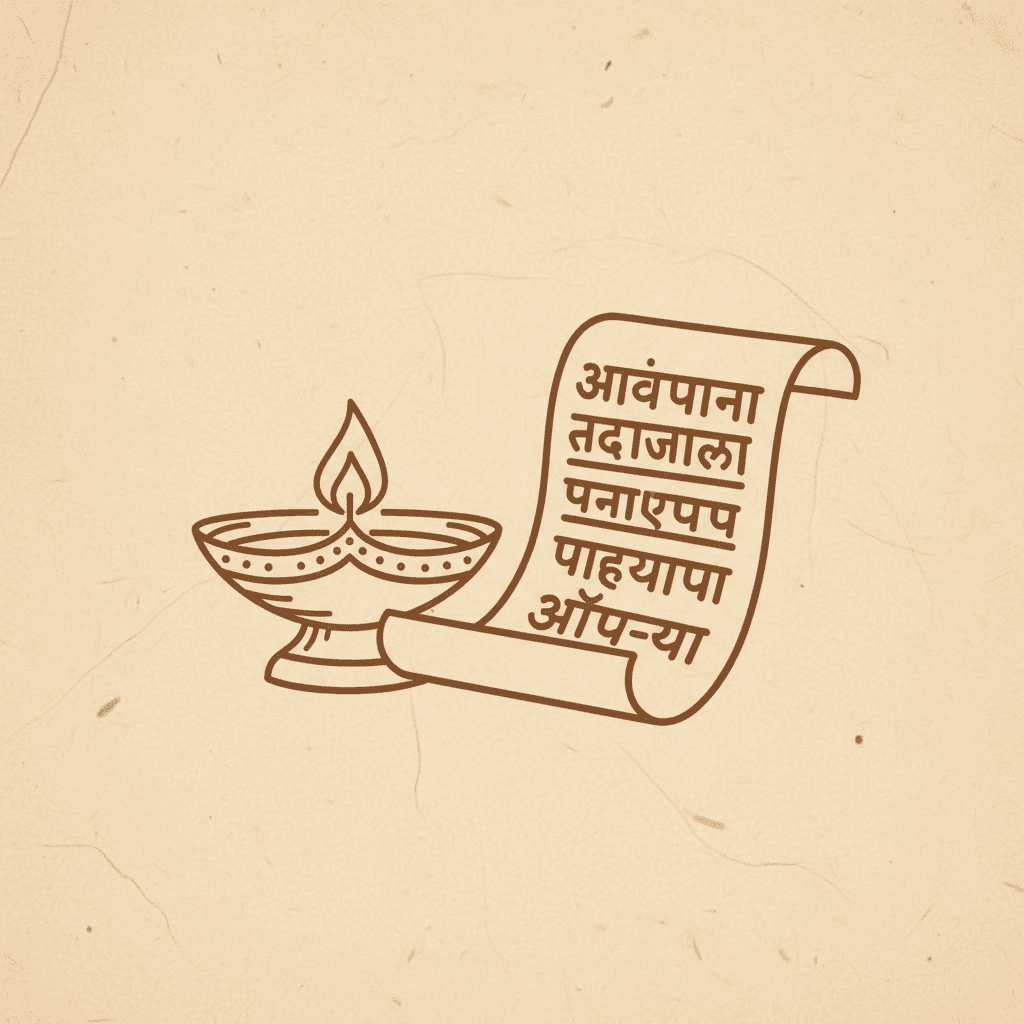 आवंपाना
तदाजाला
पनाएपप
पाहयापा
ऑप-या